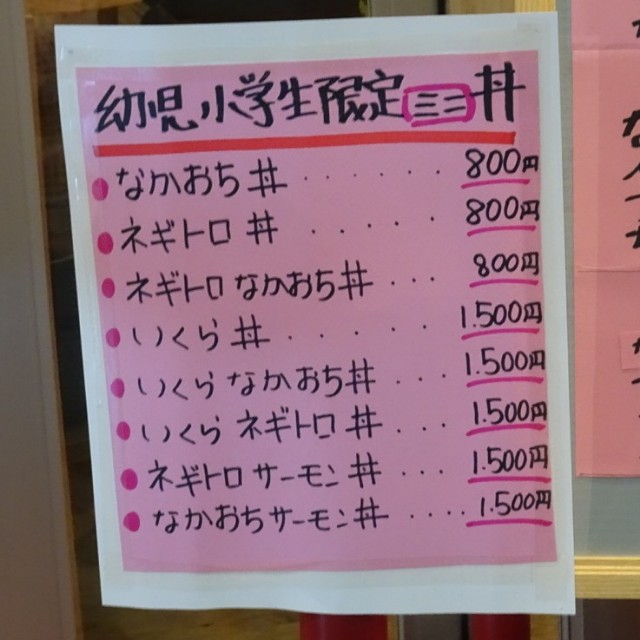 幼児小学生限定ミニ丼
なかおち丼 ······ 800円
ネギトロ丼 ····· 800円
ネギトロなかおち丼 ··· 800円
いくら丼 ······ 1.500円
いくらなかおち丼 ··· 1.500円
いくらネギトロ丼 ··· 1.500円
ネギトロサーモン丼 ··· 1.500円
なかおちサーモン丼 ···· 1.500円